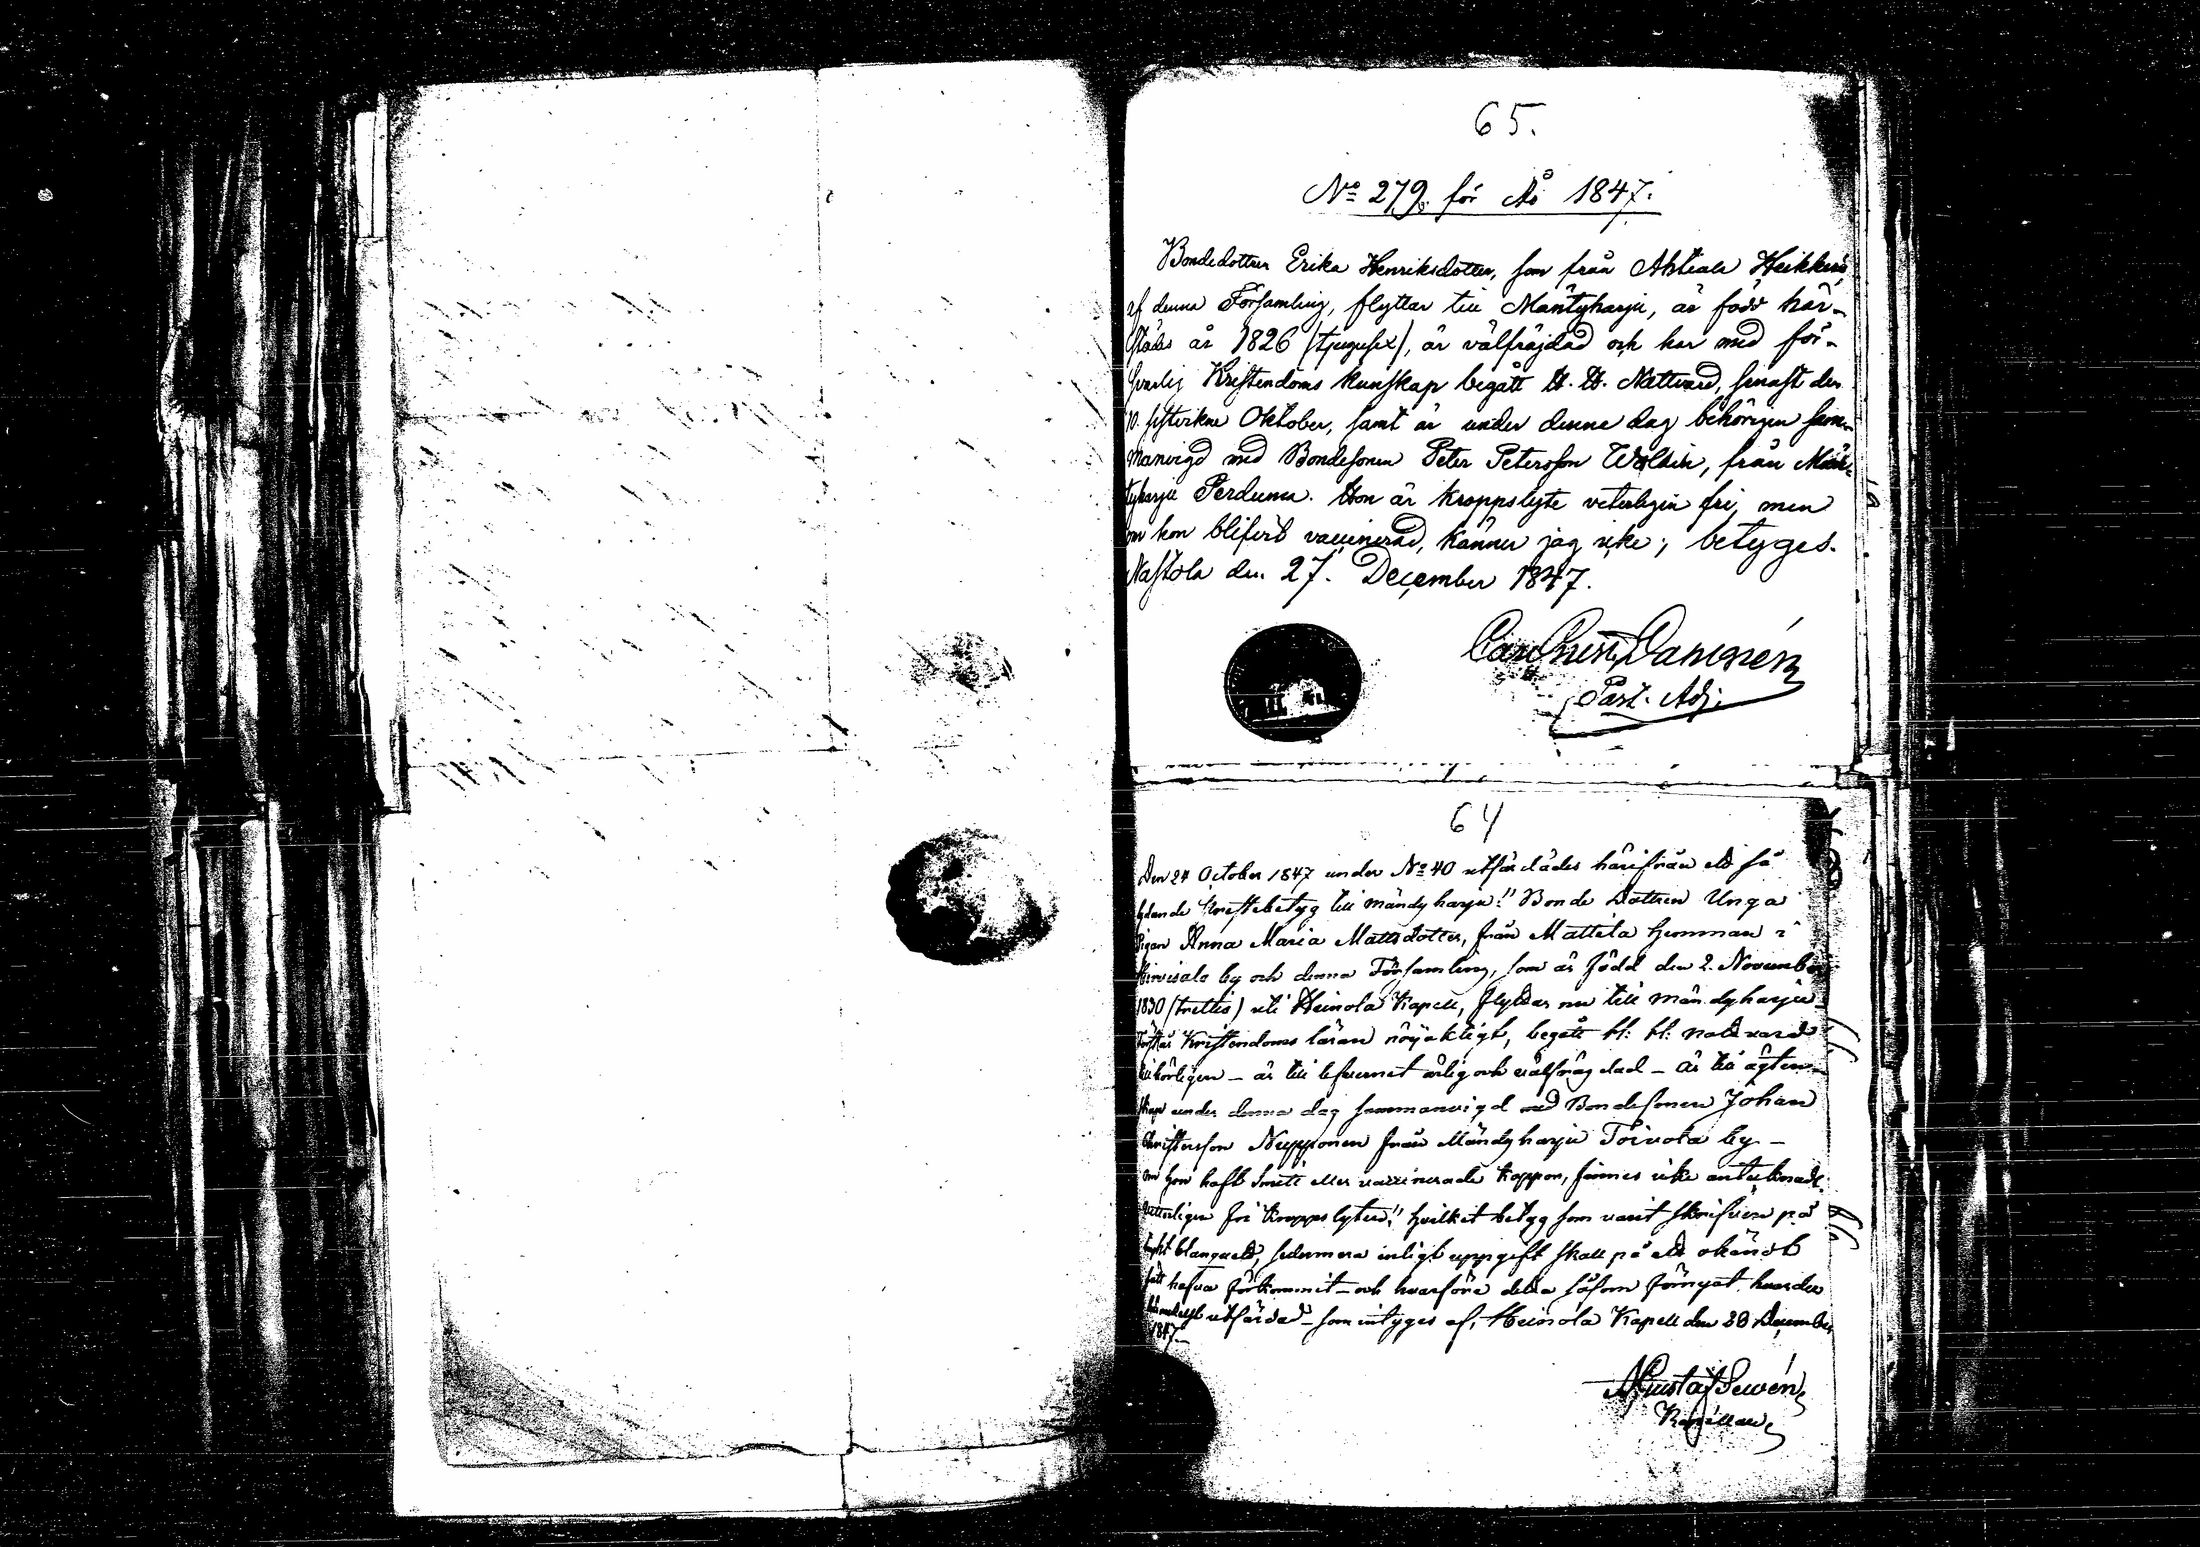 65.
No 279. för År 1847.
Bondedottren Erika Henriksdotter, som från Heikkilä
af denna Församling, flyttar till Mäntyharju, är född här-
städes år 1826 (tjugusex), är välfräjdad och har med för-
svarlig Kristendoms kunskap begått H. H. Nattvard, senast den
10. sistvikne Oktober, samt är under denne dag behörigen sam-
manvigd med Bondesonen Peter Petersson, från Män-
tyharju Pertuma. Hon är kroppslyte veterligen fri, men
om hon blifvit vaccinerad, känner jag icke; betyges.
Nastola den 27. December 1847.
Past. Adj.
64
Den 24 October 1847 under No 40 utfärdades härifrån ett så
lydande betyg till Mändyharju: "Bonde Dottren Unga
Pigan Anna Maria Mattsdotter, från Mattila hemman i
by och denna Församling, som är född den 2. November
1830 (trettio) uti Heinola Kapell, flyttar nu till Mändyharju
Förstår Kristendoms läran nöjaktigt, begått H: H: Nattvard
tillbörligen – är till lefvernet ärlig och välfrägdad – är till ägten-
skap under denna dag sammanvigd med Bondesonen Johan
Christersson Nupponen från Mändyharju Toivola by –
om hon haft eller vaccinerade koppor, finnes icke antecknadt.
Vetterligen fri Kroppslyten:" hvilket betyg som varit skrifven på
tryckt blanquett, sedermera enligt uppgift skall på ett okändt
sätt hafva förkommit – och hvarföre detta såsom förnyat
utfärdad – som intyges af, Heinola Kapell den 28 December
1847. –
Gustaf Sewén
Kapellan